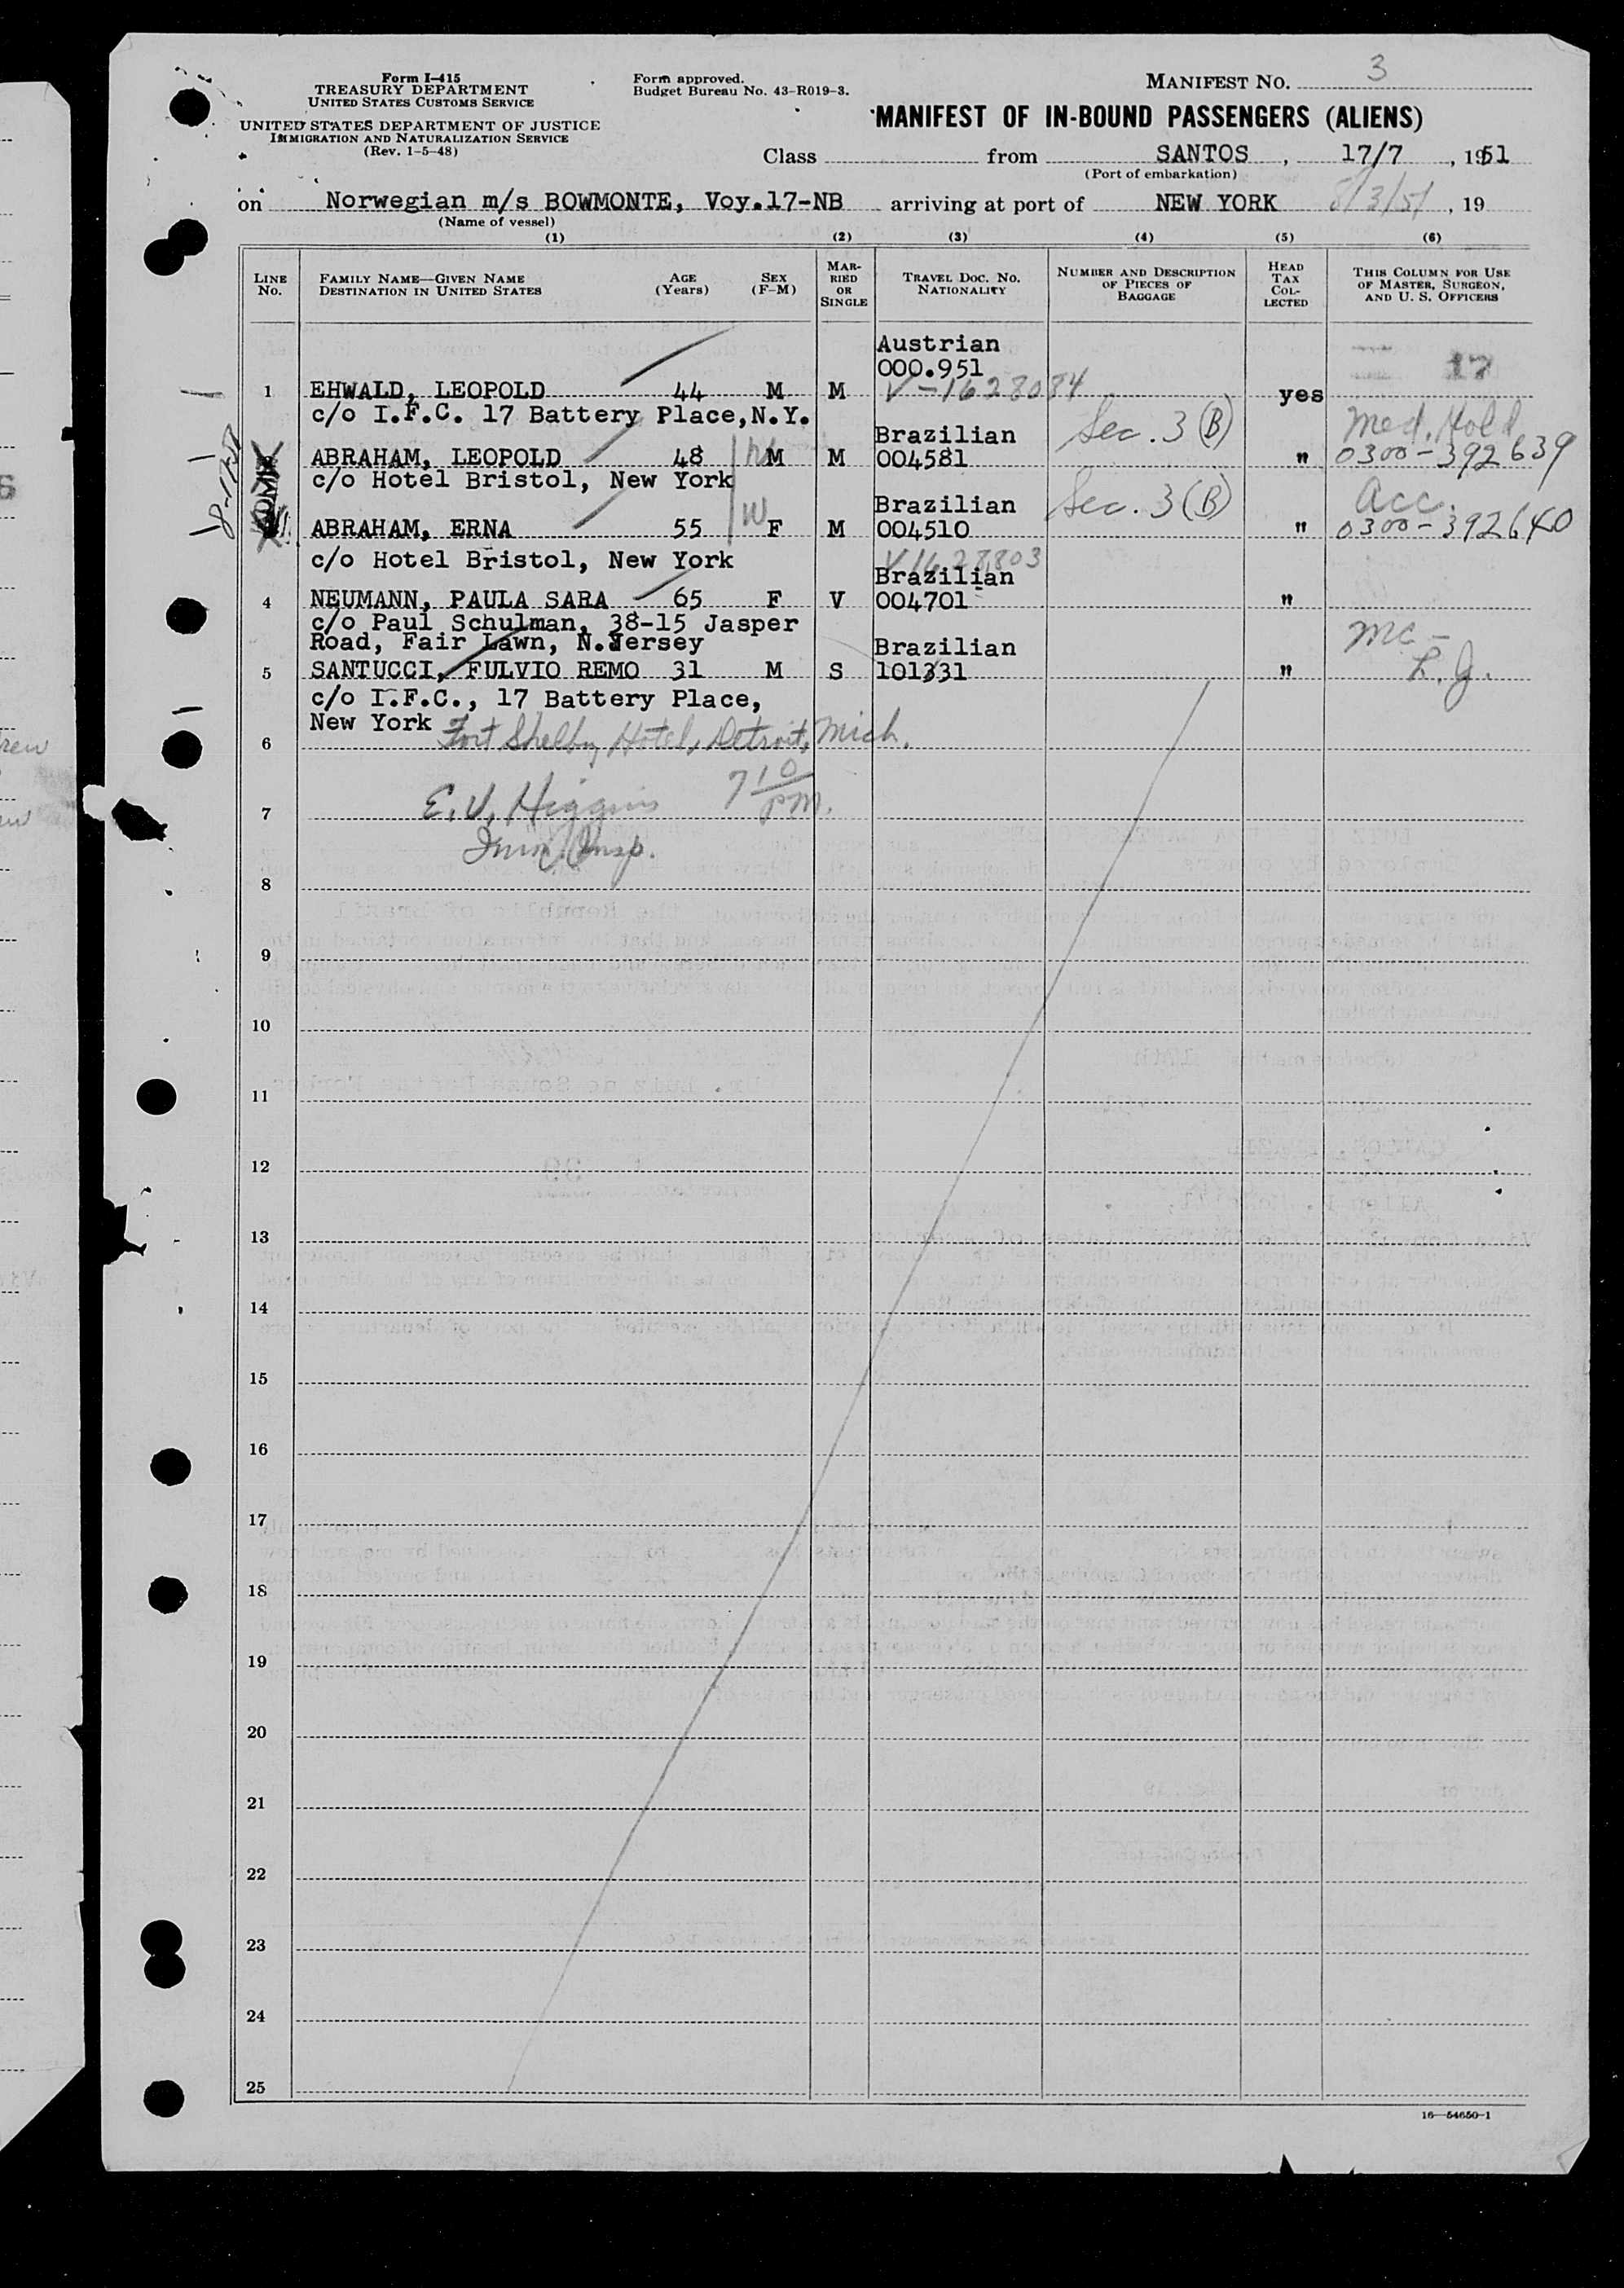 Form I-415
TREASURY DEPARTMENT
UNITED STATES CUSTOMS SERVICE
UNITED STATES DEPARTMENT OF JUSTICE
IMMIGRATION AND NATURALIZATION SERVICE
(Rev. 1-5-48)
Form approved.
Budget Bureau No. 43-R019-3.
MANIFEST NO. 3
MANIFEST OF IN-BOUND PASSENGERS (ALIENS)
Class from SANTOS, 17/7, 1951
(Port of embarkation)
on Norwegian m/s BOWMONTE, Voy.17-NB arriving at port of NEW YORK 8/3/51, 19
(Name of vessel)
(1) (2) (3) (4) (5) (6)
LINE No. FAMILY NAME—GIVEN NAME DESTINATION IN UNITED STATES AGE (Years) SEX (F-M) MARRIED OR SINGLE TRAVEL DOC. NO. NATIONALITY NUMBER AND DESCRIPTION OF PIECES OF BAGGAGE HEAD TAX COLLECTED THIS COLUMN FOR USE OF MASTER, SURGEON, AND U. S. OFFICERS
Austrian
000.951 17
1 EHWALD, LEOPOLD 44 M M V-1628084 yes
c/o I.F.C. 17 Battery Place, N.Y. Med. Hold
Brazilian Sec. 3 (B)
ABRAHAM, LEOPOLD 48 M M 004581 " 0300-392639
c/o Hotel Bristol, New York
Brazilian Sec. 3 (B) acc.
ABRAHAM, ERNA 55 W F M 004510 " 0300-392640
c/o Hotel Bristol, New York V1628803
Brazilian
4 NEUMANN, PAULA SARA 65 F V 004701 "
c/o Paul Schulman, 38-15 Jasper
Road, Fair Lawn, N.Jersey
Brazilian
5 SANTUCCI, FULVIO REMO 31 M S 101331 "
c/o I.F.C., 17 Battery Place,
New York Fort Shelby Hotel, Detroit, Mich.
6
7 E. V. Higgins 7 10 PM.
Imm. Insp.
8
9
10
11
12
13
14
15
16
17
18
19
20
21
22
23
24
25
16—54650-1